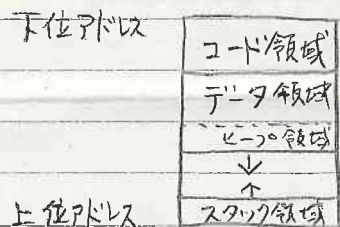 下位アドレス
コード領域
データ領域
ヒープ領域
↓
↑
上位アドレス
スタック領域